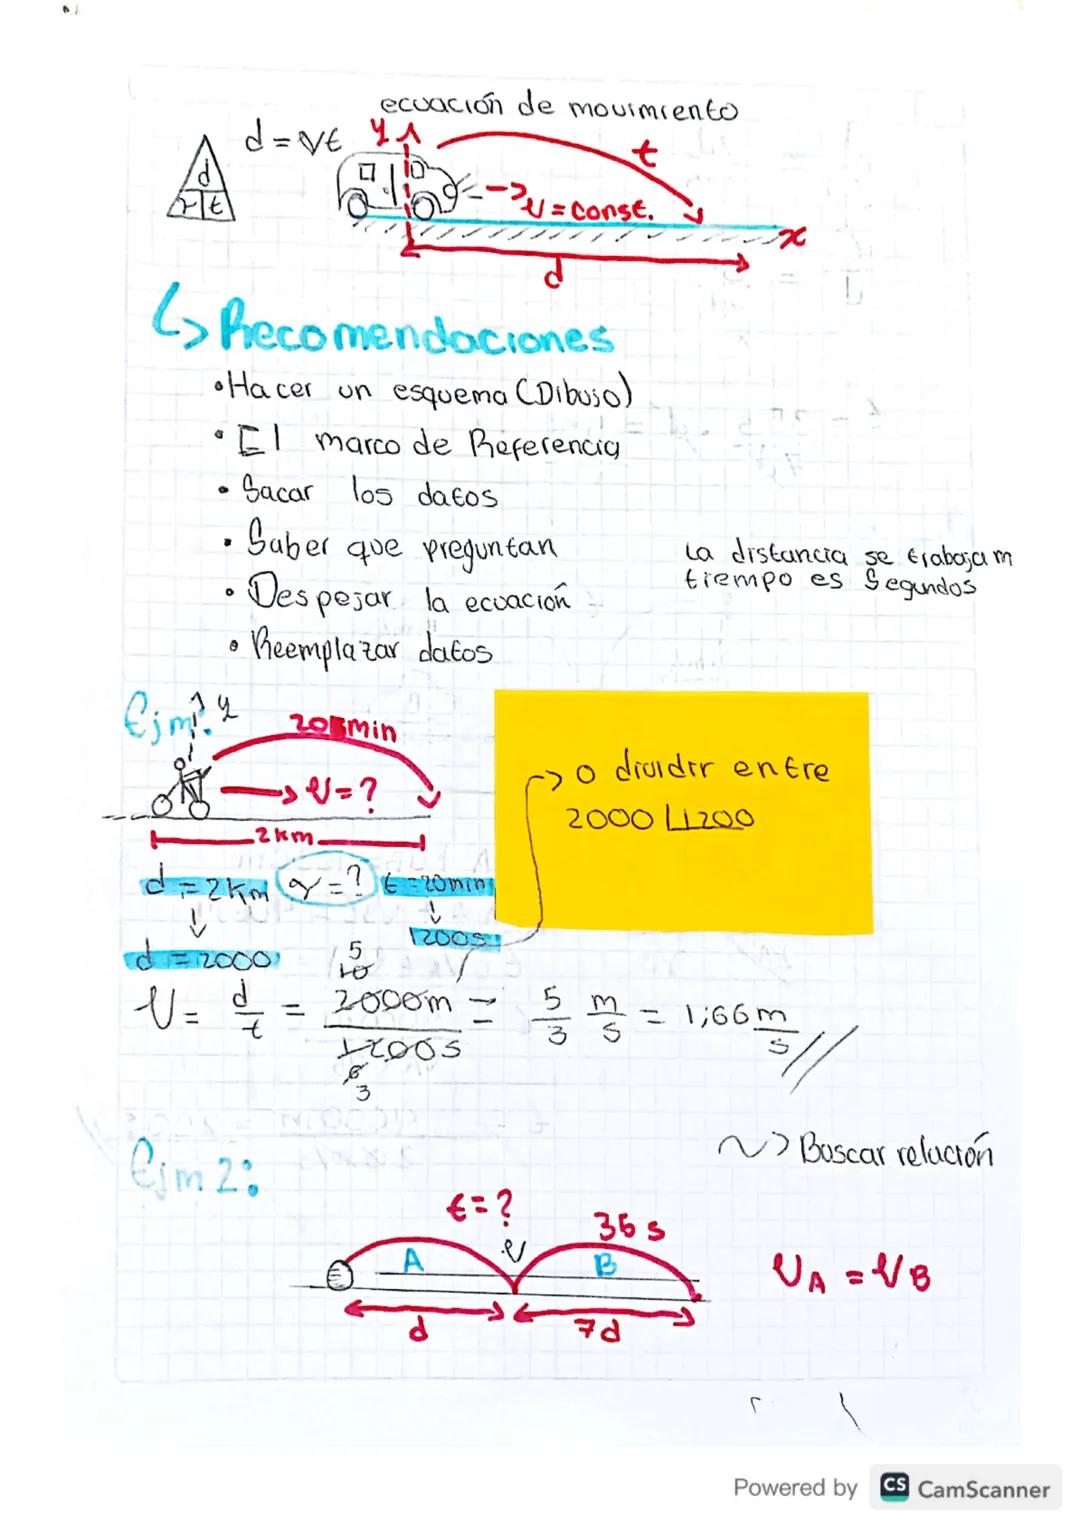 ecuación de movimiento
d = vt
y
t
d
v t
v = const.
x
d
Recomendaciones
• Hacer un esquema (Dibujo)
• El marco de Referencia
• Sacar los datos
• Saber que preguntan
La distancia se trabaja m
tiempo es Segundos
• Despejar la ecuación
• Reemplazar datos
Ejm:
y
20 min
v = ?
2 km
o dividir entre
2000 1200
d = 2 km
v = ?
t = 20 min
1200s
d = 2000
5
10
v = d/t = 2000m/1200s = 5/3 m/s = 1,66 m/s
6
3
Buscar relación
Ejm 2:
t = ?
36 s
A
v
B
vA = vB
d
7d
Powered by CS CamScanner